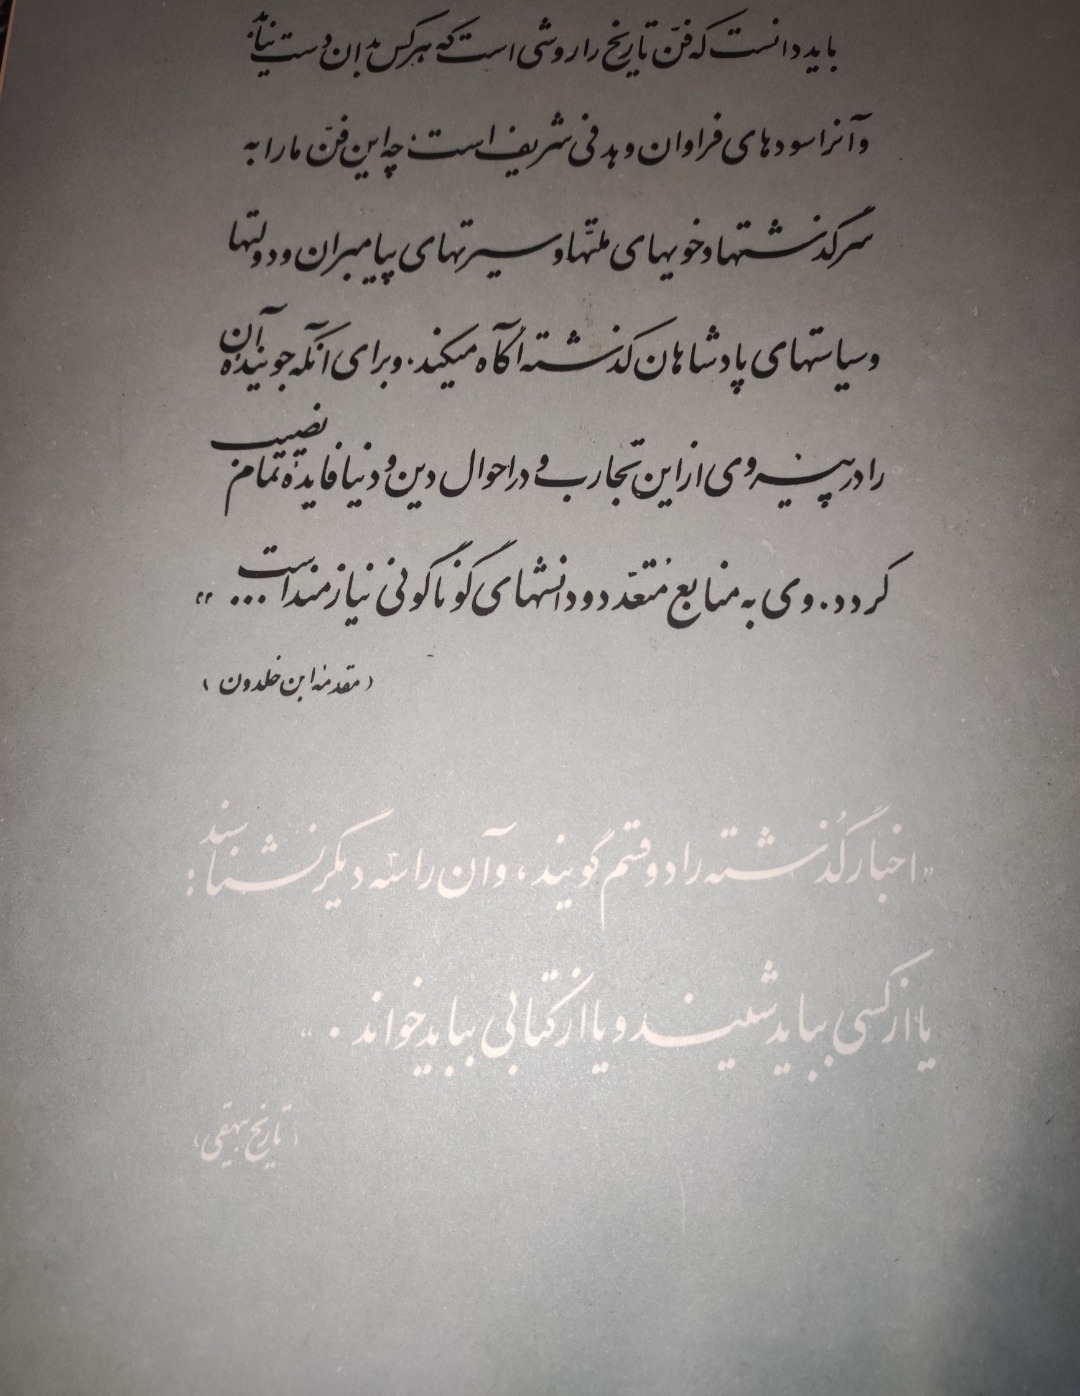 باید دانست که فنّ تاریخ را روشی است که هر کس بدان دست نیابد
و آنرا سودهای فراوان و هدفی شریف است؛ چه این فنّ ما را به
سرگذشتها و خویهای ملّتها و سیرتهای پیامبران و دولتها
و سیاستهای پادشاهان گذشته آگاه میکند. و برای آنکه جوینده آن
را در پیروی از این تجارب و در احوال دین و دنیا فایدهٔ تمام نصیب
گردد. وی به منابع مُتعدّد و دانشهای گوناگونی نیازمند است... »
(مقدمه ابن خلدون)
«اخبار گُذشته را دو قسم گویند، و آن را سه دیگر نشناسند:
یا از کسی بباید شنیند و یا از کتابی بباید خواند. »
(تاریخ بیهقی)